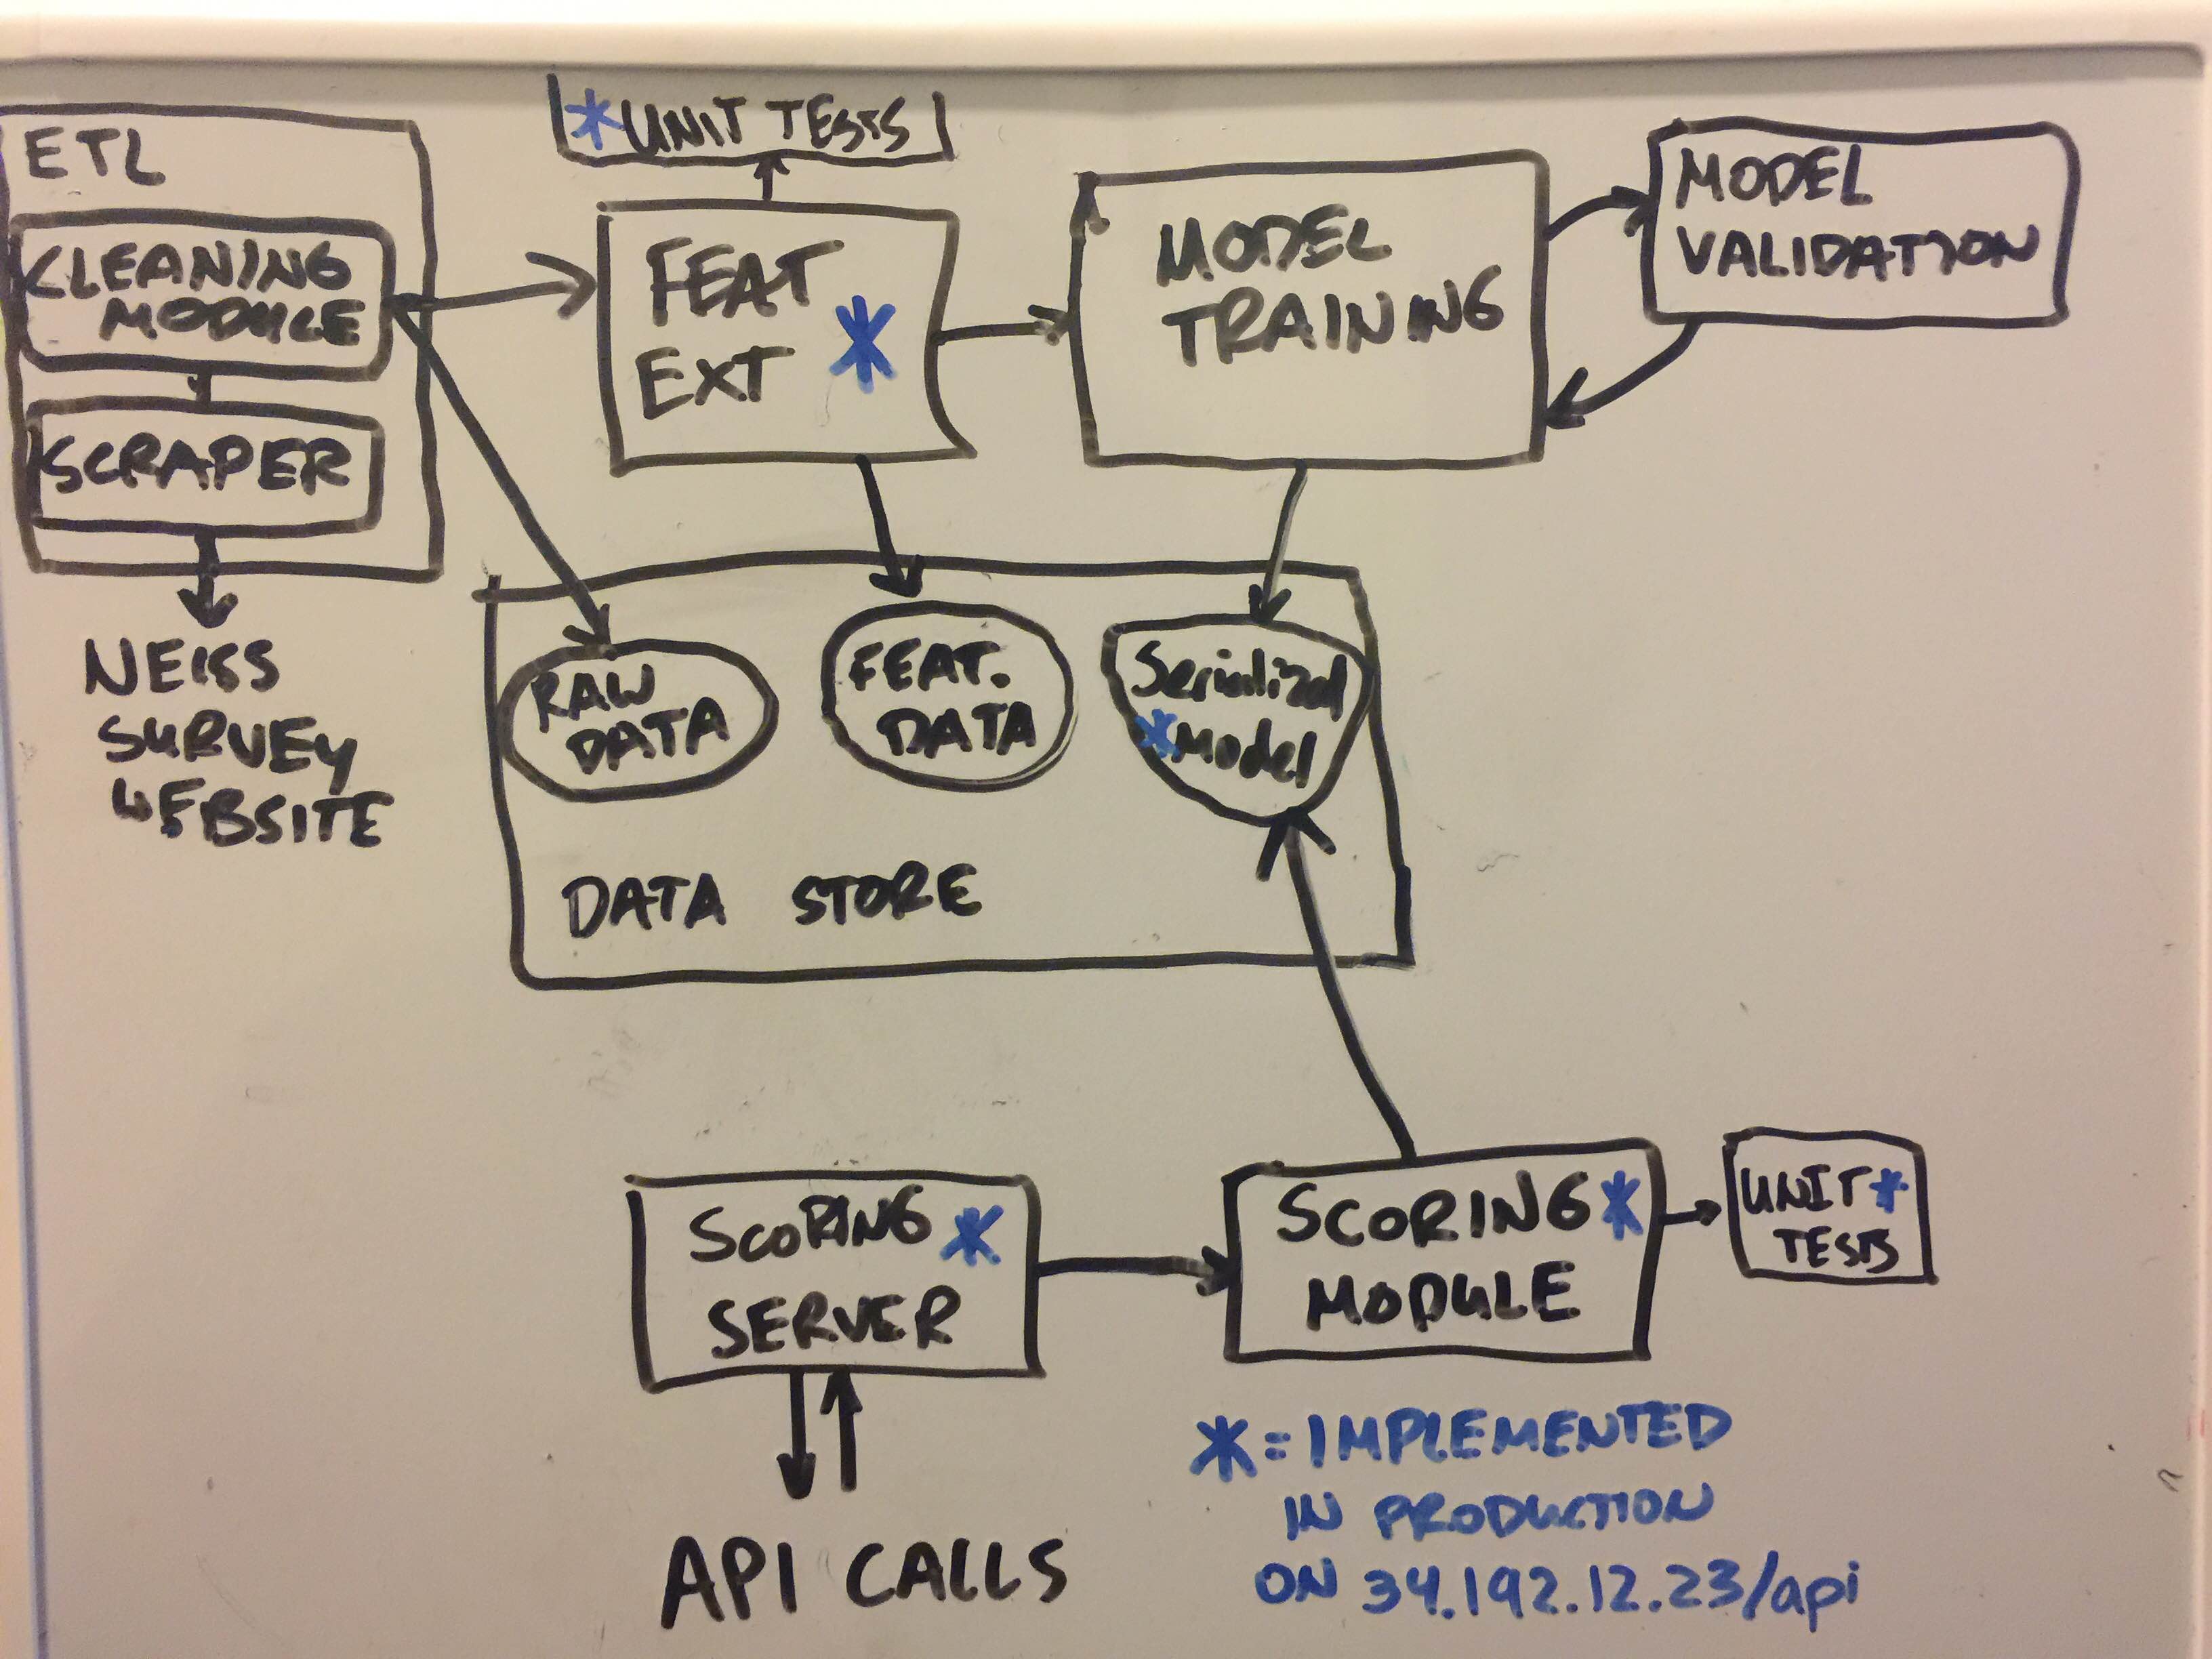 ETL
CLEANING
MODULE
SCRAPER
NEISS
SURVEY
WEBSITE
*UNIT TESTS
FEAT
EXT *
MODEL
TRAINING
MODEL
VALIDATION
RAW
DATA
FEAT.
DATA
Serialized
*Model
DATA STORE
SCORING *
SERVER
SCORING *
MODULE
UNIT *
TESTS
API CALLS
* = IMPLEMENTED
IN PRODUCTION
ON 34.192.12.23/api